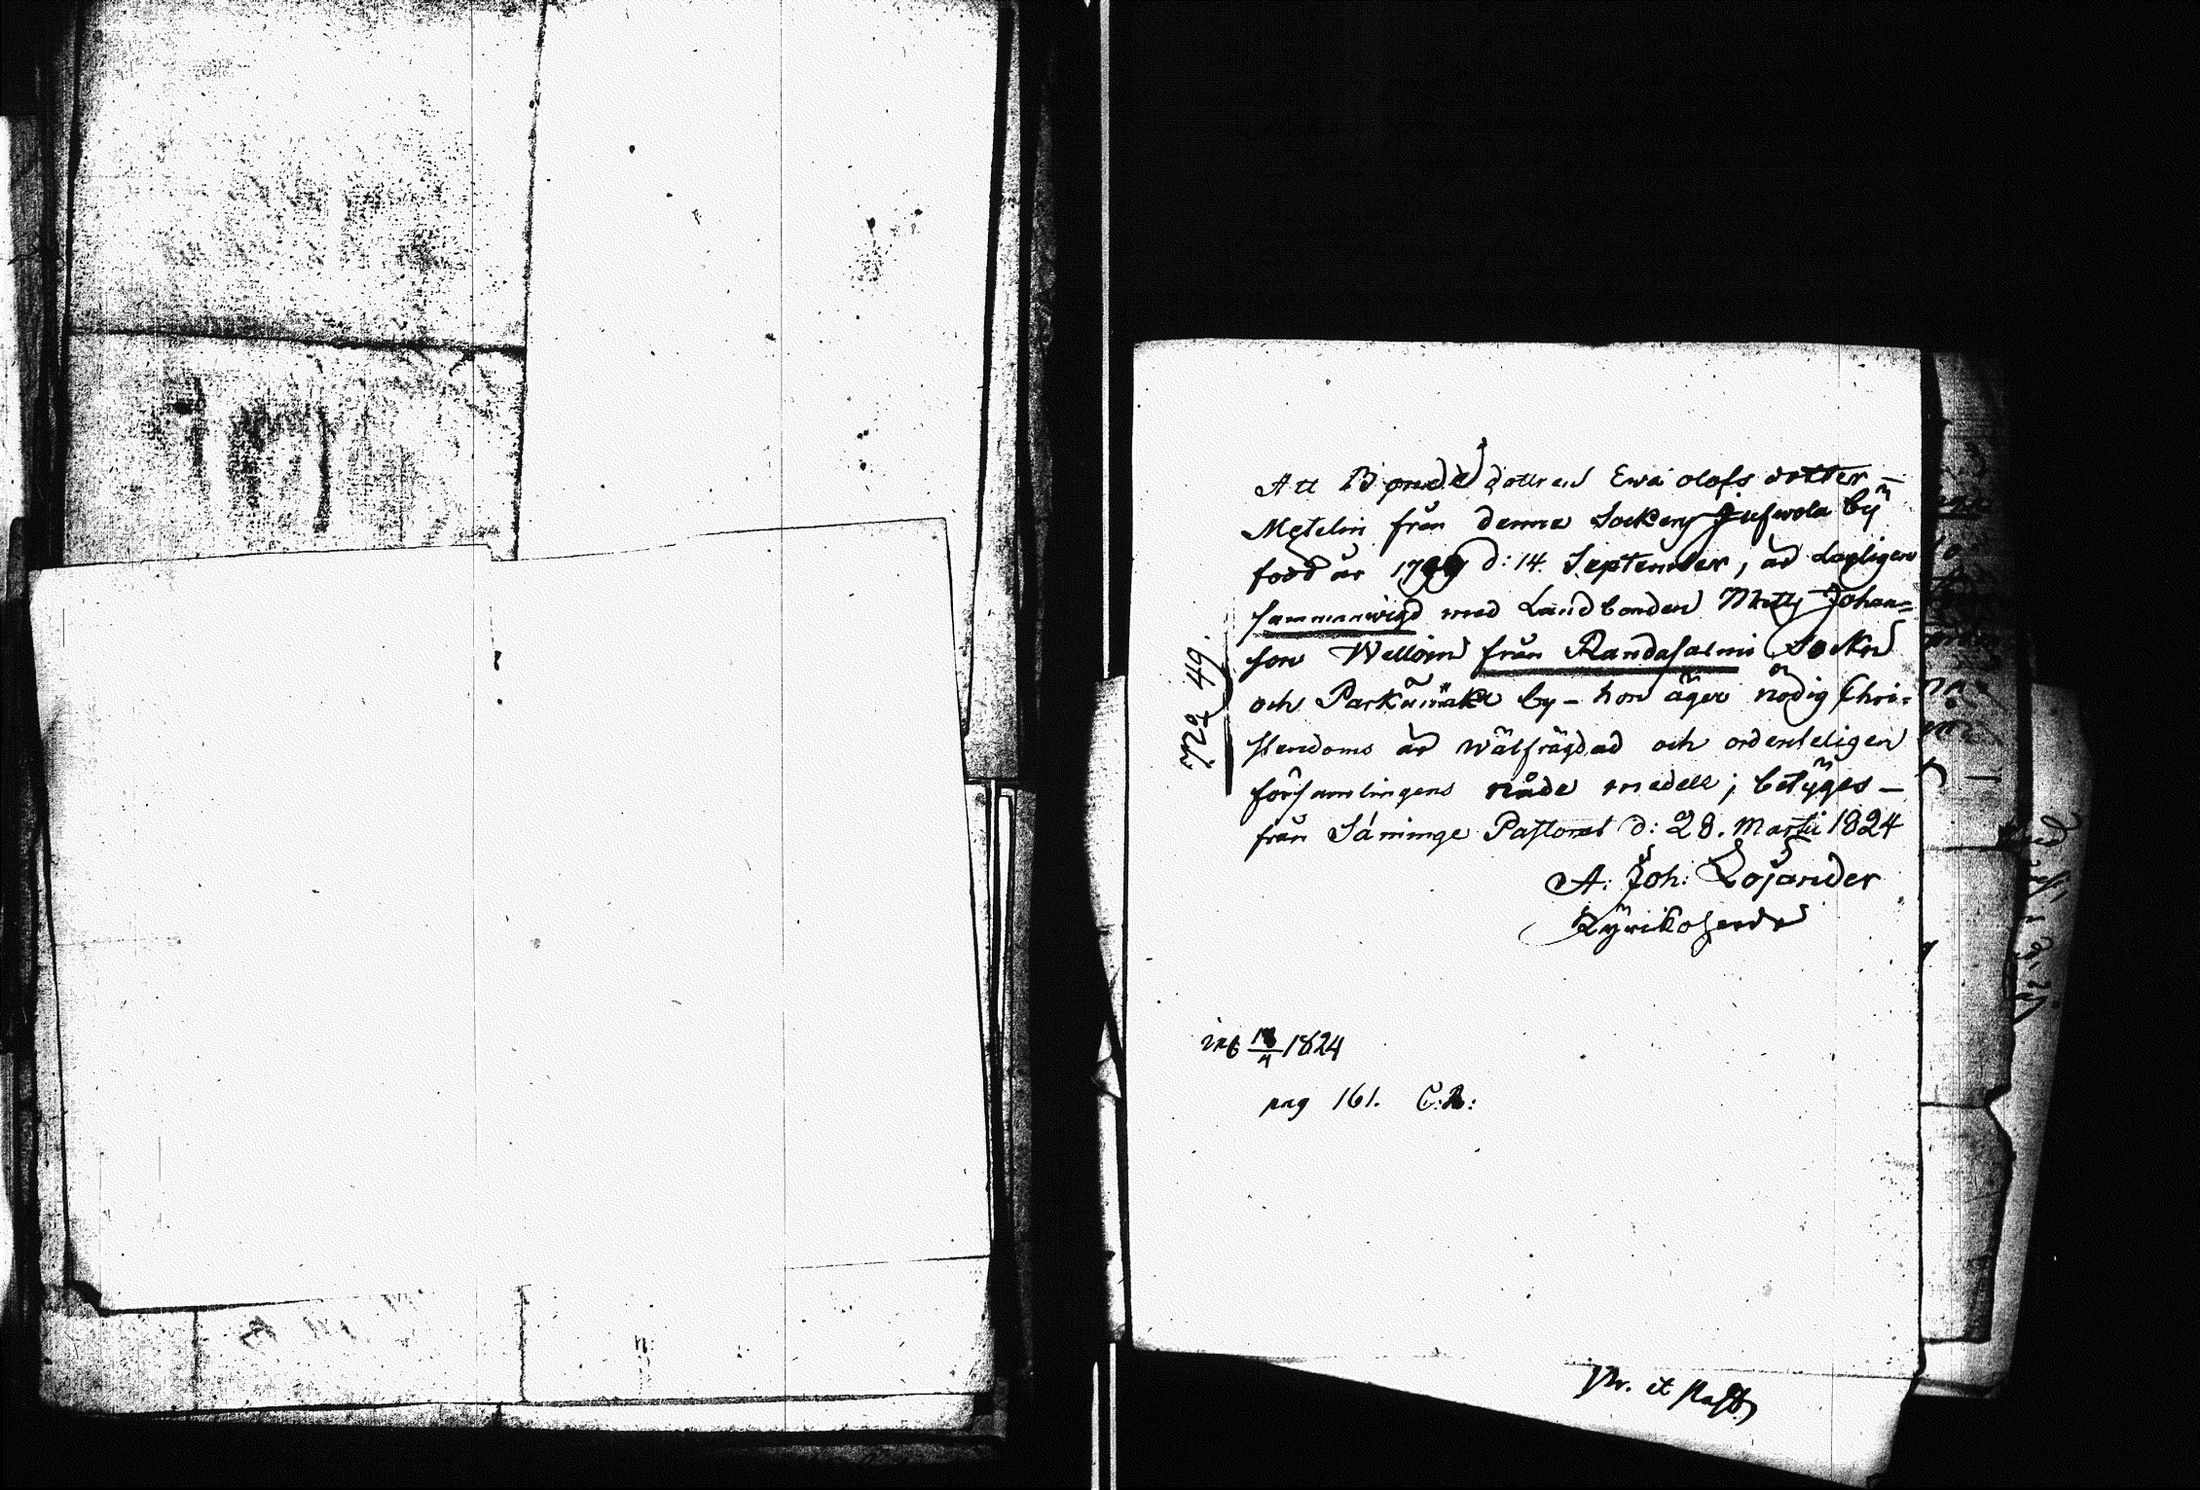 Att Bonde dottren Ewa olofs dotter –
Metelin från denna Sockens Jufwola by
född år 1799 d: 14. September, är Lagligen
sammanwigd med Landbonden Matts Johan=
son Welloin från Randasalmi Sockn
och Parkumäki by – hon äger nödig Chri-
stendoms är wälfrägdad och ordenteligen
församlingens nåde medell; betyges –
från Säminge Pastorat d: 28. Martii 1824
A: Joh: Lojander
Kyrikoherde
N:o 49.
inb 18/4 1824
pag 161. C.R:
Pr. et Past